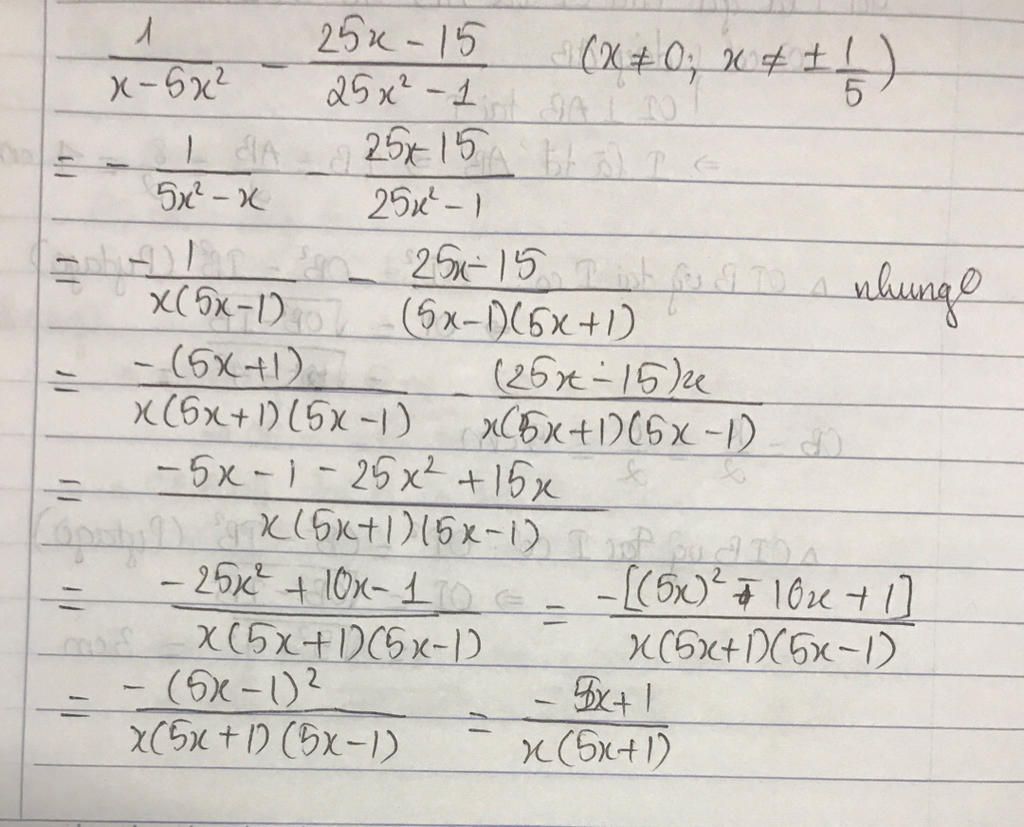 1/(x-5x²) - (25x-15)/(25x²-1) (x≠0; x≠±1/5)
= - 1/(5x²-x) - (25x-15)/(25x²-1)
= -1/(x(5x-1)) - (25x-15)/((5x-1)(5x+1)) nhung
= -(5x+1)/(x(5x+1)(5x-1)) - (25x-15)x/(x(5x+1)(5x-1))
= (-5x-1-25x²+15x)/(x(5x+1)(5x-1))
= (-25x²+10x-1)/(x(5x+1)(5x-1)) = -[(5x)²-10x+1]/(x(5x+1)(5x-1))
= -(5x-1)²/(x(5x+1)(5x-1)) = (-5x+1)/(x(5x+1))